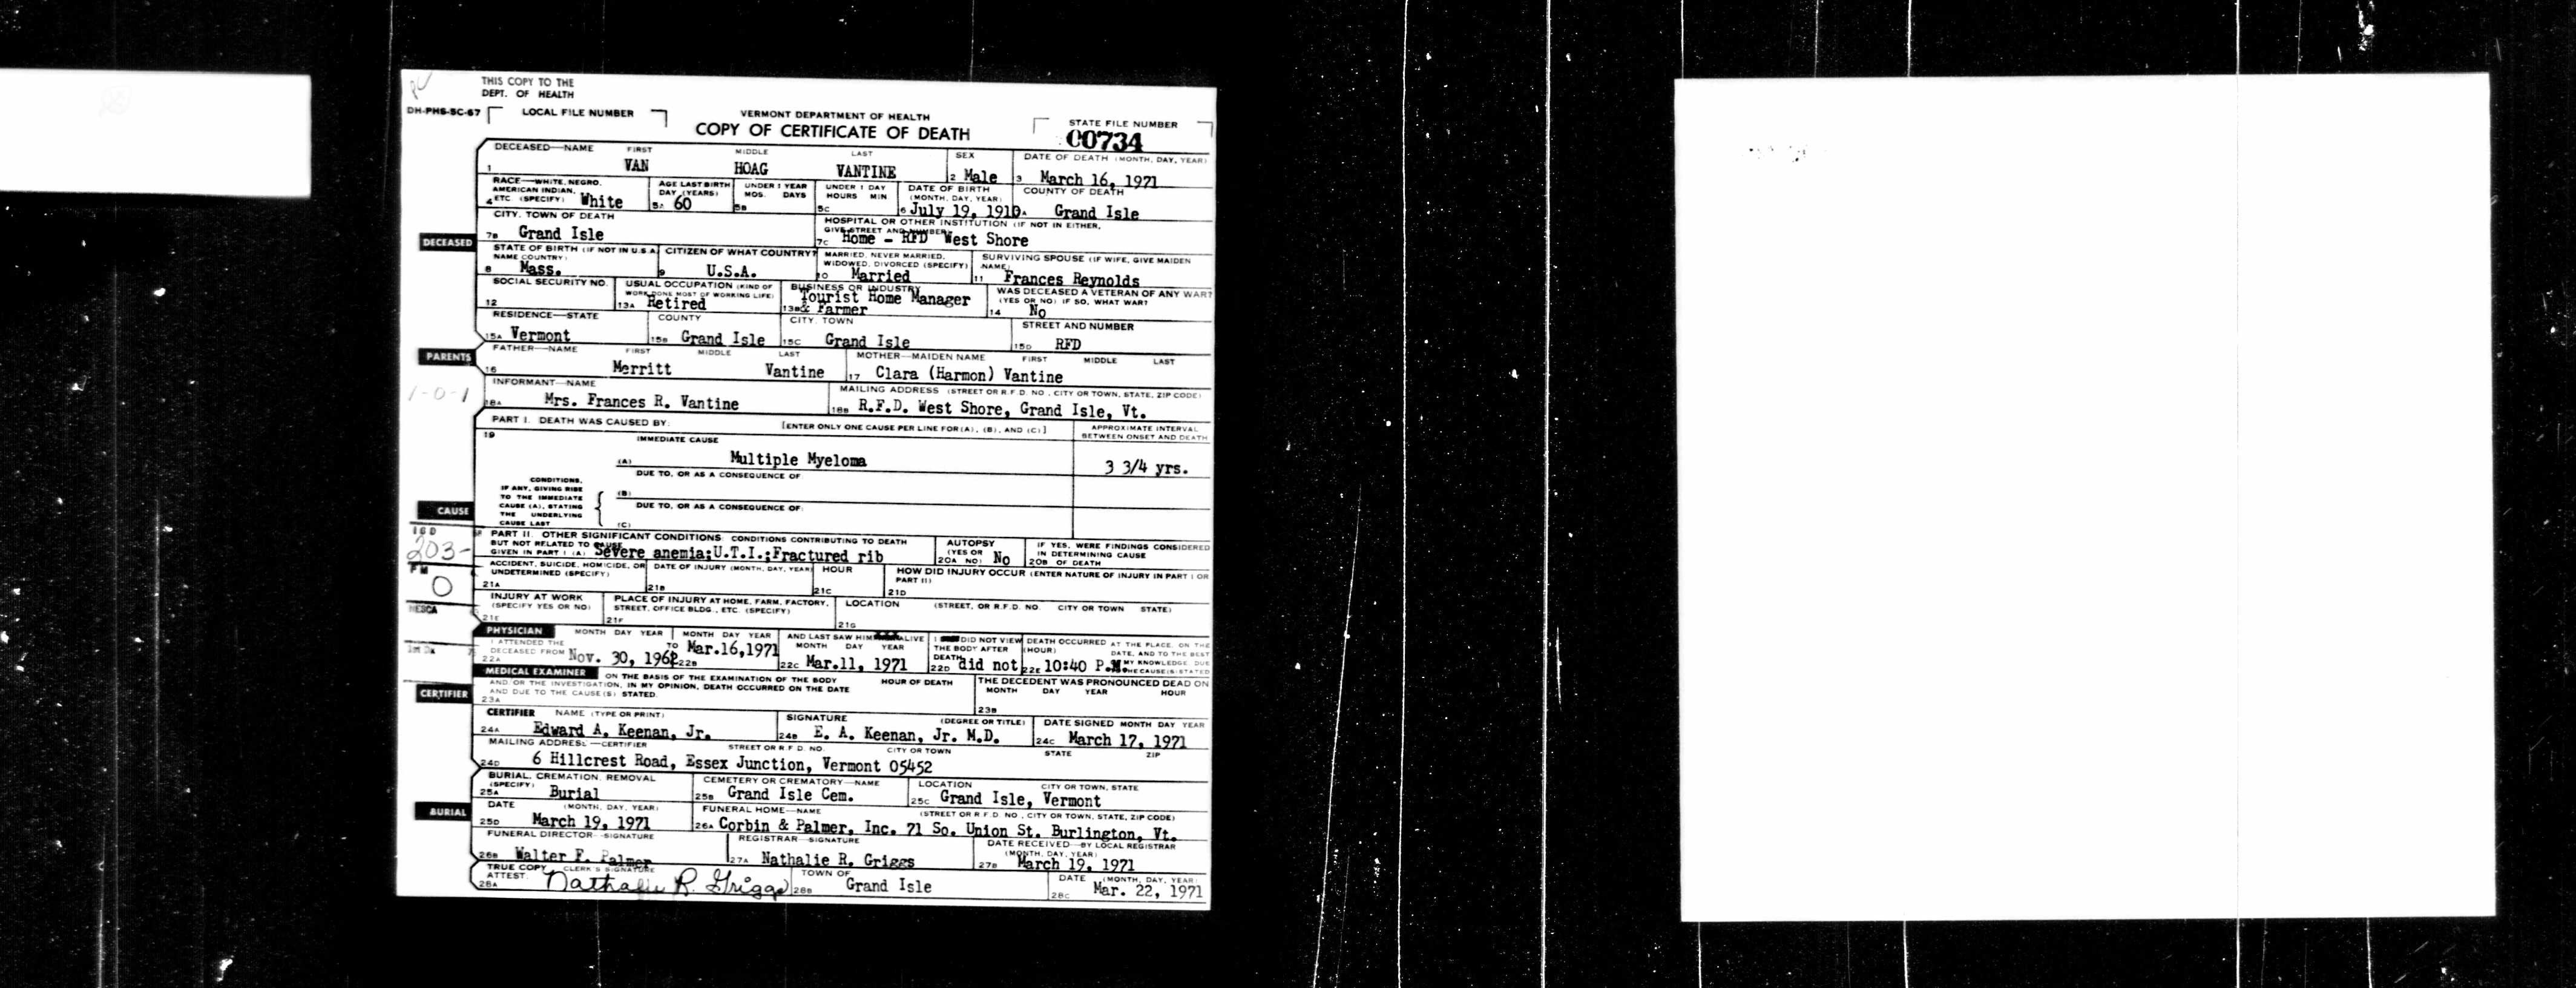 THIS COPY TO THE
DEPT. OF HEALTH
DH-PHS-SC-67 LOCAL FILE NUMBER VERMONT DEPARTMENT OF HEALTH STATE FILE NUMBER
COPY OF CERTIFICATE OF DEATH 00734
DECEASED—NAME FIRST MIDDLE LAST SEX DATE OF DEATH (MONTH, DAY, YEAR)
1 VAN HOAG VANTINE 2 Male 3 March 16, 1971
RACE—WHITE, NEGRO, AMERICAN INDIAN, ETC. (SPECIFY) AGE LAST BIRTH DAY (YEARS) UNDER 1 YEAR MOS. DAYS UNDER 1 DAY HOURS MIN DATE OF BIRTH (MONTH, DAY, YEAR) COUNTY OF DEATH
4 White 5A 60 5B 5C 6 July 19, 1910 A Grand Isle
CITY, TOWN OF DEATH HOSPITAL OR OTHER INSTITUTION (IF NOT IN EITHER, GIVE STREET AND NUMBER)
7B Grand Isle 7C Home - RFD West Shore
DECEASED
STATE OF BIRTH (IF NOT IN U.S.A. NAME COUNTRY) CITIZEN OF WHAT COUNTRY? MARRIED, NEVER MARRIED, WIDOWED, DIVORCED (SPECIFY) SURVIVING SPOUSE (IF WIFE, GIVE MAIDEN NAME)
8 Mass. 9 U.S.A. 10 Married 11 Frances Reynolds
SOCIAL SECURITY NO. USUAL OCCUPATION (KIND OF WORK DONE MOST OF WORKING LIFE) BUSINESS OR INDUSTRY WAS DECEASED A VETERAN OF ANY WAR? (YES OR NO) IF SO, WHAT WAR?
12 13A Retired 13B Tourist Home Manager & Farmer 14 No
RESIDENCE—STATE COUNTY CITY, TOWN STREET AND NUMBER
15A Vermont 15B Grand Isle 15C Grand Isle 15D RFD
PARENTS
FATHER—NAME FIRST MIDDLE LAST MOTHER—MAIDEN NAME FIRST MIDDLE LAST
16 Merritt Vantine 17 Clara (Harmon) Vantine
1-0-1
INFORMANT—NAME MAILING ADDRESS (STREET OR R.F.D. NO., CITY OR TOWN, STATE, ZIP CODE)
18A Mrs. Frances R. Vantine 18B R.F.D. West Shore, Grand Isle, Vt.
PART I. DEATH WAS CAUSED BY: [ENTER ONLY ONE CAUSE PER LINE FOR (A), (B), AND (C)] APPROXIMATE INTERVAL BETWEEN ONSET AND DEATH
19 IMMEDIATE CAUSE
(A) Multiple Myeloma 3 3/4 yrs.
DUE TO, OR AS A CONSEQUENCE OF:
CONDITIONS, IF ANY, GIVING RISE TO THE IMMEDIATE CAUSE (A), STATING THE UNDERLYING CAUSE LAST
(B)
DUE TO, OR AS A CONSEQUENCE OF:
(C)
CAUSE
203-
PART II. OTHER SIGNIFICANT CONDITIONS: CONDITIONS CONTRIBUTING TO DEATH BUT NOT RELATED TO CAUSE GIVEN IN PART I (A) AUTOPSY (YES OR NO) IF YES, WERE FINDINGS CONSIDERED IN DETERMINING CAUSE OF DEATH
Severe anemia;U.T.I.;Fractured rib 20A No 20B
0
ACCIDENT, SUICIDE, HOMICIDE, OR UNDETERMINED (SPECIFY) DATE OF INJURY (MONTH, DAY, YEAR) HOUR HOW DID INJURY OCCUR (ENTER NATURE OF INJURY IN PART I OR PART II)
21A 21B 21C 21D
INJURY AT WORK (SPECIFY YES OR NO) PLACE OF INJURY AT HOME, FARM, FACTORY, STREET, OFFICE BLDG., ETC. (SPECIFY) LOCATION (STREET, OR R.F.D. NO. CITY OR TOWN STATE)
21E 21F 21G
PHYSICIAN MONTH DAY YEAR MONTH DAY YEAR AND LAST SAW HIM ALIVE MONTH DAY YEAR I DID NOT VIEW THE BODY AFTER DEATH DEATH OCCURRED (HOUR) AT THE PLACE, ON THE DATE, AND TO THE BEST MY KNOWLEDGE, DUE THE CAUSE(S) STATED
I ATTENDED THE DECEASED FROM
22A Nov. 30, 196 TO 22B Mar.16,1971 22C Mar.11, 1971 22D did not 22E 10:40 P.M.
MEDICAL EXAMINER ON THE BASIS OF THE EXAMINATION OF THE BODY AND/OR THE INVESTIGATION, IN MY OPINION, DEATH OCCURRED ON THE DATE AND DUE TO THE CAUSE(S) STATED. HOUR OF DEATH THE DECEDENT WAS PRONOUNCED DEAD ON MONTH DAY YEAR HOUR
23A 23B
CERTIFIER
CERTIFIER NAME (TYPE OR PRINT) SIGNATURE (DEGREE OR TITLE) DATE SIGNED MONTH DAY YEAR
24A Edward A. Keenan, Jr. 24B E. A. Keenan, Jr. M.D. 24C March 17, 1971
MAILING ADDRESS—CERTIFIER STREET OR R.F.D. NO. CITY OR TOWN STATE ZIP
24D 6 Hillcrest Road, Essex Junction, Vermont 05452
BURIAL, CREMATION, REMOVAL (SPECIFY) CEMETERY OR CREMATORY—NAME LOCATION CITY OR TOWN, STATE
25A Burial 25B Grand Isle Cem. 25C Grand Isle, Vermont
BURIAL
DATE (MONTH, DAY, YEAR) FUNERAL HOME—NAME (STREET OR R.F.D. NO., CITY OR TOWN, STATE, ZIP CODE)
25D March 19, 1971 26A Corbin & Palmer, Inc. 71 So. Union St. Burlington, Vt.
FUNERAL DIRECTOR—SIGNATURE REGISTRAR—SIGNATURE DATE RECEIVED BY LOCAL REGISTRAR (MONTH, DAY, YEAR)
26B Walter F. Palmer 27A Nathalie R. Griggs 27B March 19, 1971
TRUE COPY ATTEST. CLERK'S SIGNATURE TOWN OF DATE (MONTH, DAY, YEAR)
28A Nathalie R. Griggs 28B Grand Isle 28C Mar. 22, 1971